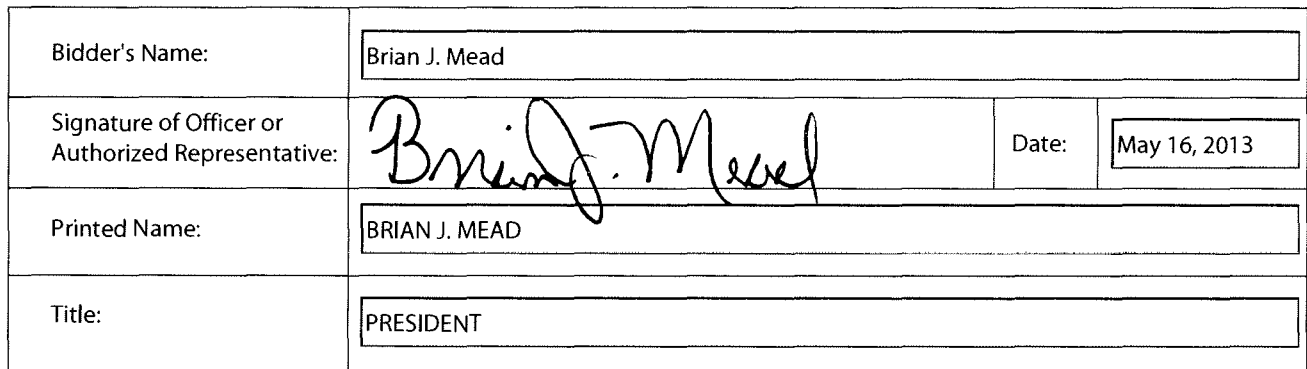 Bidder's Name: Brian J. Mead
Signature of Officer or
Authorized Representative: Brian J. Mead Date: May 16, 2013
Printed Name: BRIAN J. MEAD
Title: PRESIDENT